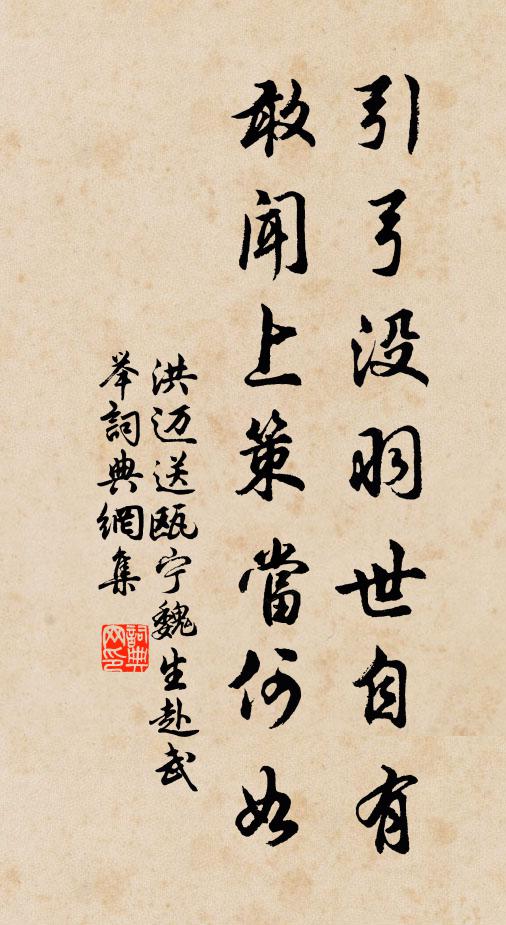 引弓没羽世自有
敢闻上策當何如
洪迈送瓯宁魏生赴武
举詞典網集
詞典網印